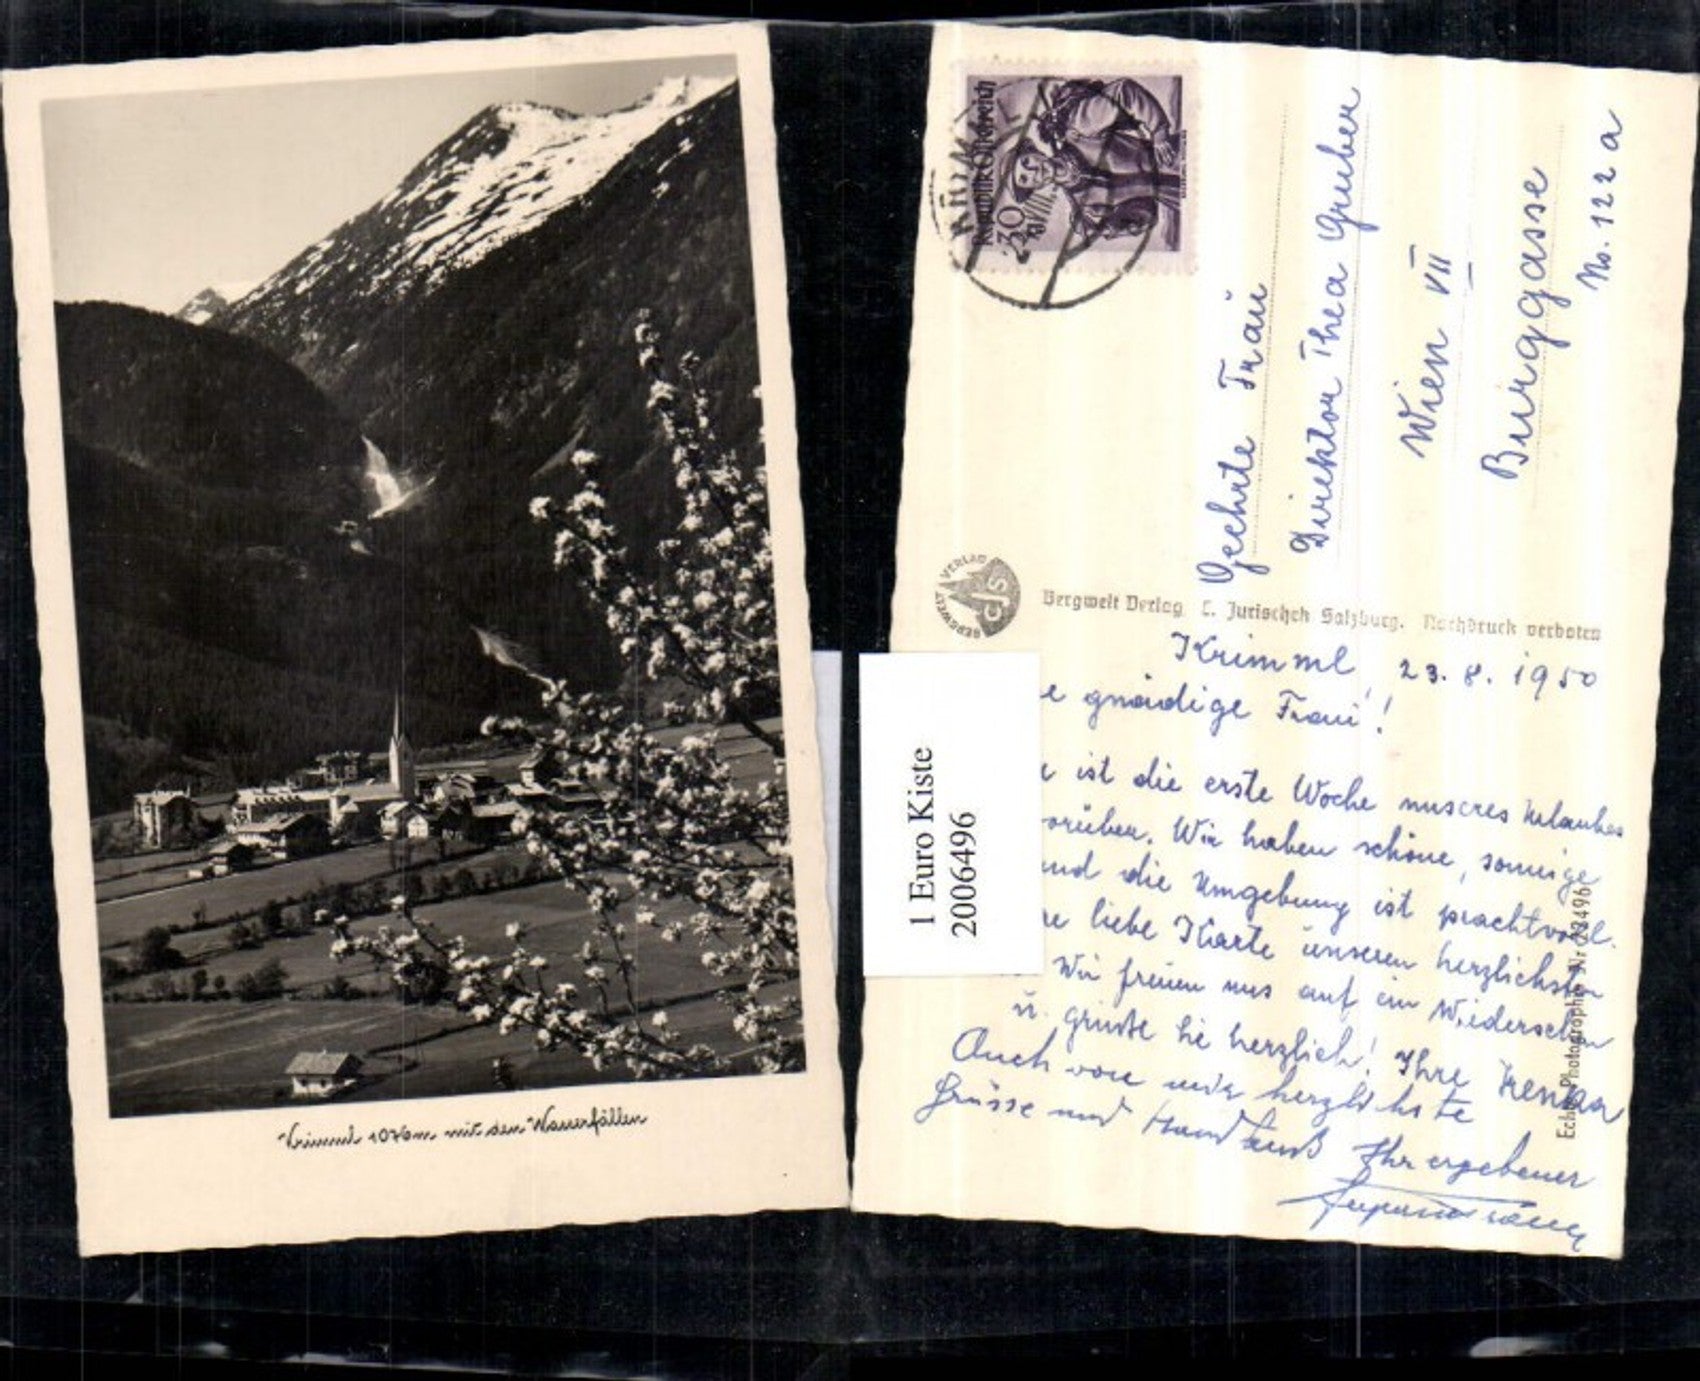 Krimml 1076m mit den Wasserfällen
Republik Österreich
30
KRIMML
Geehrte Frau
Direktor Thea Gruber
Wien VII
Burggasse
No. 122 a
BERGWELT VERLAG
CJS
Bergwelt Verlag C. Jurischek Salzburg. Nachdruck verboten
Krimml 23. 8. 1950
gnädige Frau!
ist die erste Woche unseres Urlaubes
orüber. Wir haben schöne, sonnige
und die Umgebung ist prachtvoll.
liebe Karte unseren herzlichsten
Wir freuen uns auf ein Wiedersehen
u. grüße Sie herzlich! Ihre
Auch von mir herzlichste
Grüsse und Handkuß Ihr ergebener
Echte Photographie Nr. 22496
1 Euro Kiste
2006496